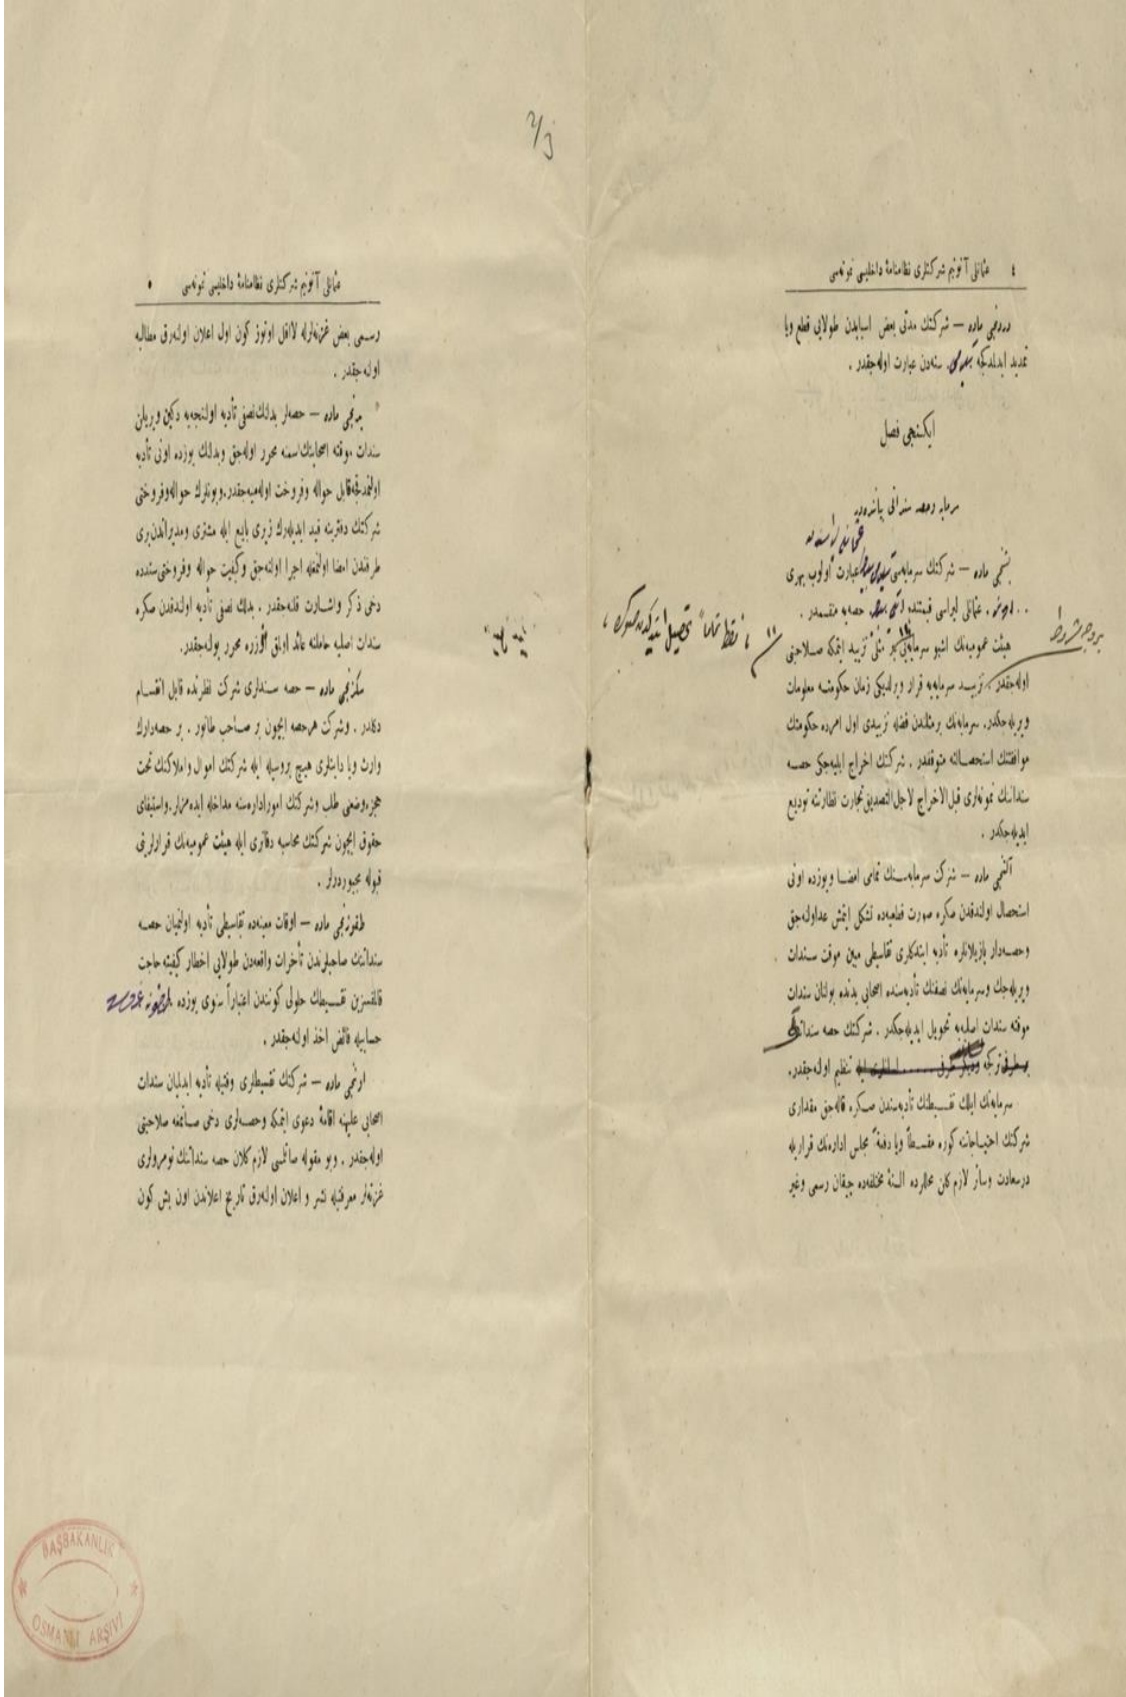 ٤ عثمانلی آنونیم شرکتلری نظامنامهٔ داخلیسی نمونه‌سی
دردنجی ماده — شرکتك مدتی بعض اسبابدن طولایی قطع ویا
تمدید ایدلدکجه سنه‌دن عبارت اوله‌جقدر .
ایکنجی فصل
سرمایه وحصه سنداتی بیاننده‌در
بشنجی ماده — شرکتك سرمایه‌سی عبارت اولوب بهری
عثمانلی لیراسی قیمتنده حصه‌یه منقسمدر .
هیئت عمومیه‌نك اشبو سرمایه‌یی بر مثلی تزیید ایتمکه صلاحیتی
اوله‌جقدر . تزیید سرمایه‌یه قرار ویرلدیکی زمان حکومته معلومات
ویریله‌جکدر. سرمایه‌نك برمثلندن فضله تزییدی اول امرده حکومتك
موافقتنك استحصالنه متوقفدر . شرکتك اخراج ایلیه‌جکی حصه
سنداتنك نمونه‌لری قبل الاخراج لاجل التصدیق تجارت نظارتنه تودیع
ایدیله‌جکدر .
آلتنجی ماده — شرکت سرمایه‌سنك تمامی امضا ویوزده اونی
استحصال اولندقدن صکره صورت قطعیه‌ده تشکل ایتمش عد اوله‌جق
وحصه‌دار یازیلانلره تأدیه ایتدکلری تقاسیطی مبین موقت سندات
ویریله‌جك وسرمایه‌نك نصفنك تأدیه‌سنده اصحابی یدنده بولنان سندات
موقته سندات اصلیه‌یه تحویل ایدیله‌جکدر . شرکتك حصه سنداتنك
بر طرفی ترکجه ودیکر طرفی ...... لسانلری ایله تنظیم اوله‌جقدر.
سرمایه‌نك ایلك تقسیطنك تأدیه‌سندن صکره قاله‌جق مقداری
شرکتك احتیاجاتنه کوره مقسطاً ویا دفعةً مجلس اداره‌نك قراریله
درسعادت وسائر لازم کلن محللرده السنهٔ مختلفه‌ده چیقان رسمی وغیر
فقط تماماً تحصیل ایتدکدن صوکره
بروجه مشروط
٢/٣
عثمانلی آنونیم شرکتلری نظامنامهٔ داخلیسی نمونه‌سی ٥
رسمی بعض غزته‌لرله لااقل اوتوز کون اول اعلان اوله‌رق مطالبه
اوله‌جقدر .
یدنجی ماده — حصه‌لر بدلاتك نصفی تأدیه اولنجه‌یه دکین ویریلن
سندات موقته اصحابنك اسمنه محرر اوله‌جق وبدلك یوزده اونی تأدیه
اولنمدقجه قابل حواله وفروخت اوله‌میه‌جقدر. وبونلرك حواله وفروختی
شرکتك دفترینه قید ایدیله‌رك زیری بایع ایله مشتری ومدیراندن بری
طرفندن امضا اولنمغله اجرا اولنه‌جق وکیفیت حواله وفروختی سندده
دخی ذکر واشارت قلنه‌جقدر . بدلك نصفی تأدیه اولندقدن صکره
سندات اصلیه حاملنه عائد اولمق اوزره محرر بوله‌جقدر.
سکزنجی ماده — حصه سندلری شرکت نظرنده قابل انقسام
دکلدر . وشرکت هر حصه ایچون بر صاحب طانور . بر حصه‌دارك
وارث ویا داینلری هیچ بر وسیله ایله شرکتك اموال واملاکنك تحت
حجزه وضعنی طلب وشرکتك امور اداره‌سنه مداخله ایده‌مزلر. واستیفای
حقوق ایچون شرکتك محاسبه دفاتری ایله هیئت عمومیه‌نك قرارلرینی
قبوله مجبوردرلر .
طقوزنجی ماده — اوقات معینه‌ده تقاسیطی تأدیه اولنمیان حصه
سنداتنك صاحبلرندن تأخرات واقعه‌دن طولایی اخطار کیفیته حاجت
قالمقسزین تقسیطك حلولی کونندن اعتباراً سنوی یوزده
حسابیله فائض اخذ اوله‌جقدر .
اوننجی ماده — شرکتك تقسیطلری وقتیله تأدیه ایدلمیان سندات
اصحابی علیهنه اقامهٔ دعوی ایتمکه وحصه‌لری دخی صاتمغه صلاحیتی
اوله‌جقدر . وبو مقوله صاتلمسی لازم کلان حصه سنداتنك نومرولری
غزته‌لر معرفتیله نشر و اعلان اوله‌رق تاریخ اعلاندن اون بش کون
BAŞBAKANLIK
OSMANLI ARŞİVİ